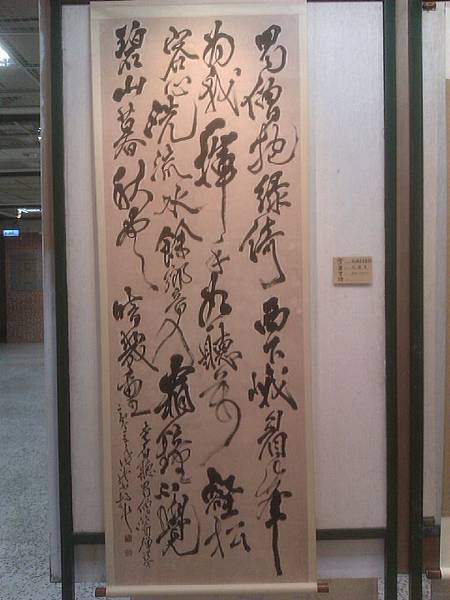 蜀僧抱綠綺西下峨眉峰
為我一揮手如聽萬壑松
客心洗流水餘響入霜鐘不覺
碧山暮秋雲暗幾重
李白聽蜀僧濬彈琴